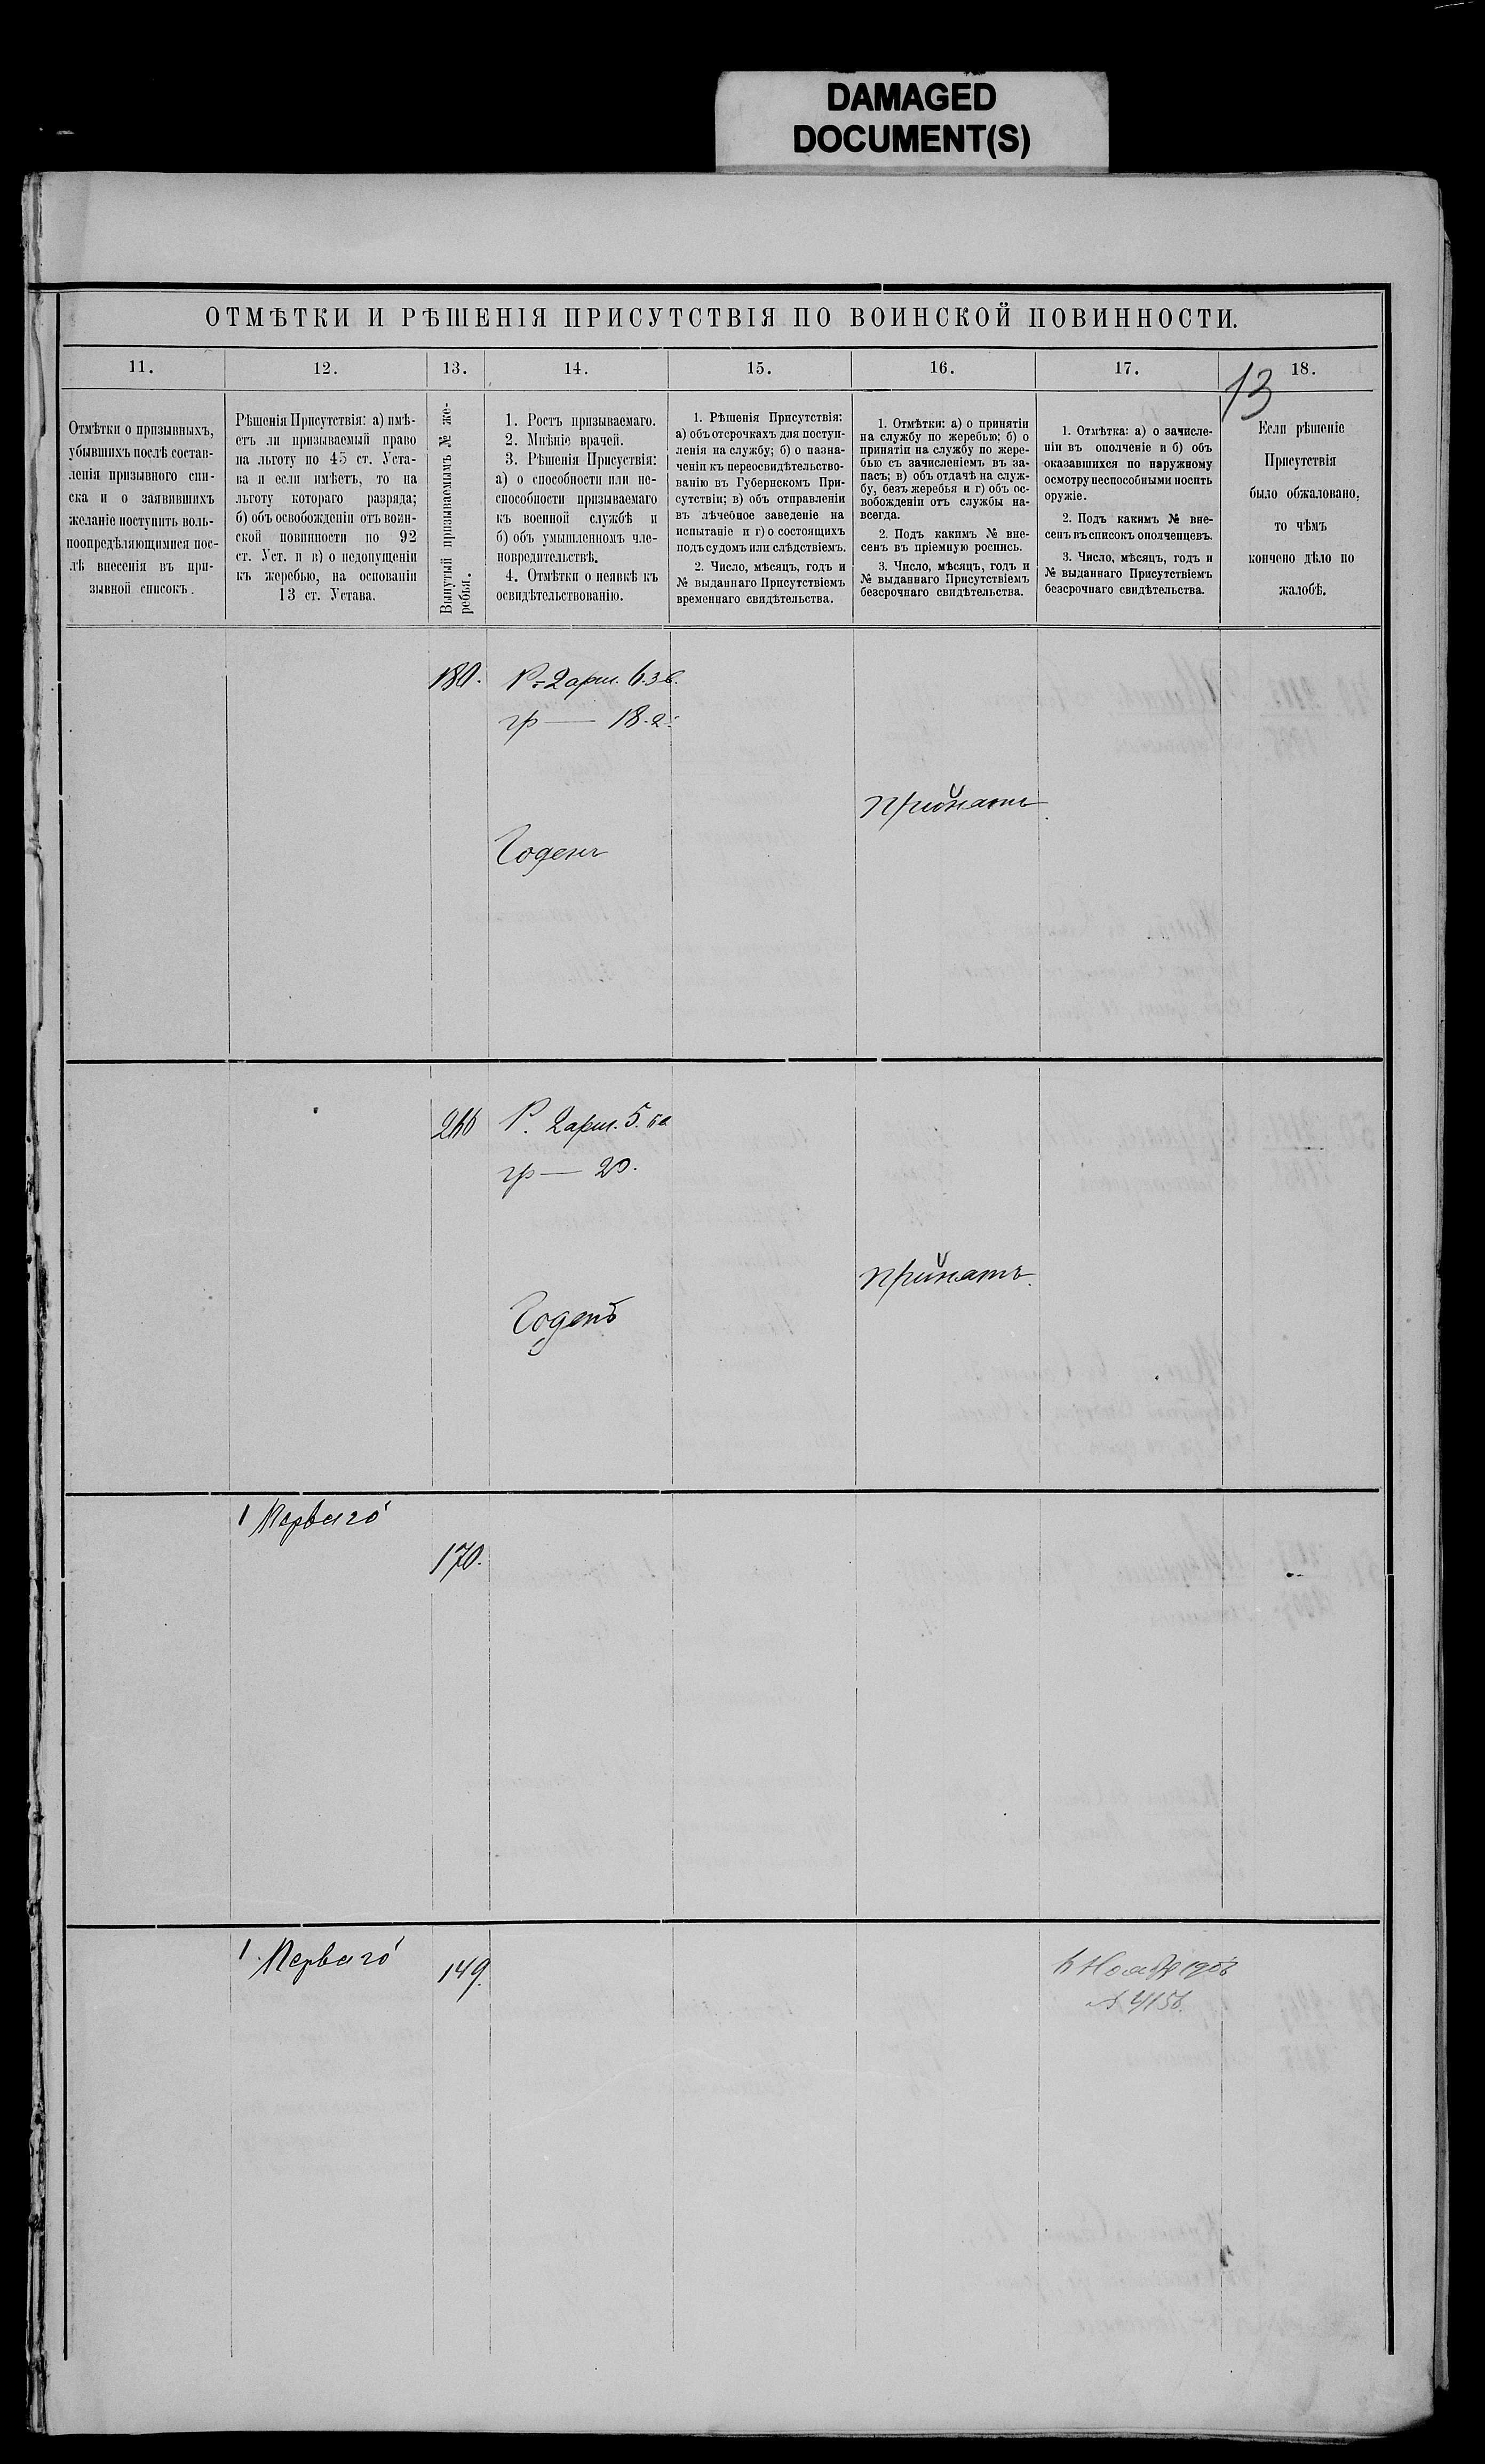 DAMAGED
DOCUMENT(S)
ОТМѢТКИ И РѢШЕНІЯ ПРИСУТСТВІЯ ПО ВОИНСКОЙ ПОВИННОСТИ.
11.
12.
13.
14.
15.
16.
17.
18.
13
Отмѣтки о призывныхъ,
убывшихъ послѣ состав-
ленія призывного спи-
ска и о заявившихъ
желаніе поступить воль-
ноопредѣляющимися пос-
лѣ внесенія въ при-
зывной списокъ.
Рѣшенія Присутствія: а) имѣ-
етъ ли призываемый право
на льготу по 45 ст. Уста-
ва и если имѣетъ, то на
льготу котораго разряда;
б) объ освобожденіи отъ воин-
ской повинности по 92
ст. Уст. и в) о недопущеніи
къ жеребью, на основаніи
13 ст. Устава.
Вынутый призываемымъ № же-
ребья.
1. Ростъ призываемаго.
2. Мнѣніе врачей.
3. Рѣшенія Присуствія:
а) о способности или не-
способности призываемаго
къ военной службѣ и
б) объ умышленномъ чле-
новредительствѣ.
4. Отмѣтки о неявкѣ къ
освидѣтельствованію.
1. Рѣшенія Присутствія:
а) объ отсрочкахъ для поступ-
ленія на службу; б) о назна-
ченіи къ переосвидѣтельство-
ванію въ Губернскомъ При-
сутствіи; в) объ отправленіи
въ лѣчебное заведеніе на
испытаніе и г) о состоящихъ
подъ судомъ или слѣдствіемъ.
2. Число, мѣсяцъ, годъ и
№ выданнаго Присутствіемъ
временнаго свидѣтельства.
1. Отмѣтки: а) о принятіи
на службу по жеребью; б) о
принятіи на службу по жере-
бью съ зачисленіемъ въ за-
пасъ; в) объ отдачѣ на служ-
бу, безъ жеребья и г) объ ос-
вобожденіи отъ службы на-
всегда.
2. Подъ какимъ № вне-
сенъ въ пріемную роспись.
3. Число, мѣсяцъ, годъ и
№ выданнаго Присутствіемъ
безсрочнаго свидѣтельства.
1. Отмѣтка: а) о зачисле-
ніи въ ополченіе и б) объ
оказавшихся по наружному
осмотру неспособными носить
оружіе.
2. Подъ какимъ № вне-
сенъ въ списокъ ополченцевъ.
3. Число, мѣсяцъ, годъ и
№ выданнаго Присутствіемъ
безсрочнаго свидѣтельства.
Если рѣшеніе
Присутствія
было обжаловано,
то чѣмъ
кончено дѣло по
жалобѣ.
180.
Р. 2 арш. 6 .
гр — 18.
Годенъ
Прийнятъ.
Р. 2 арш. 5.
гр — 20.
Годенъ
Прийнятъ.
1 Перваго
170.
1 Перваго
149.